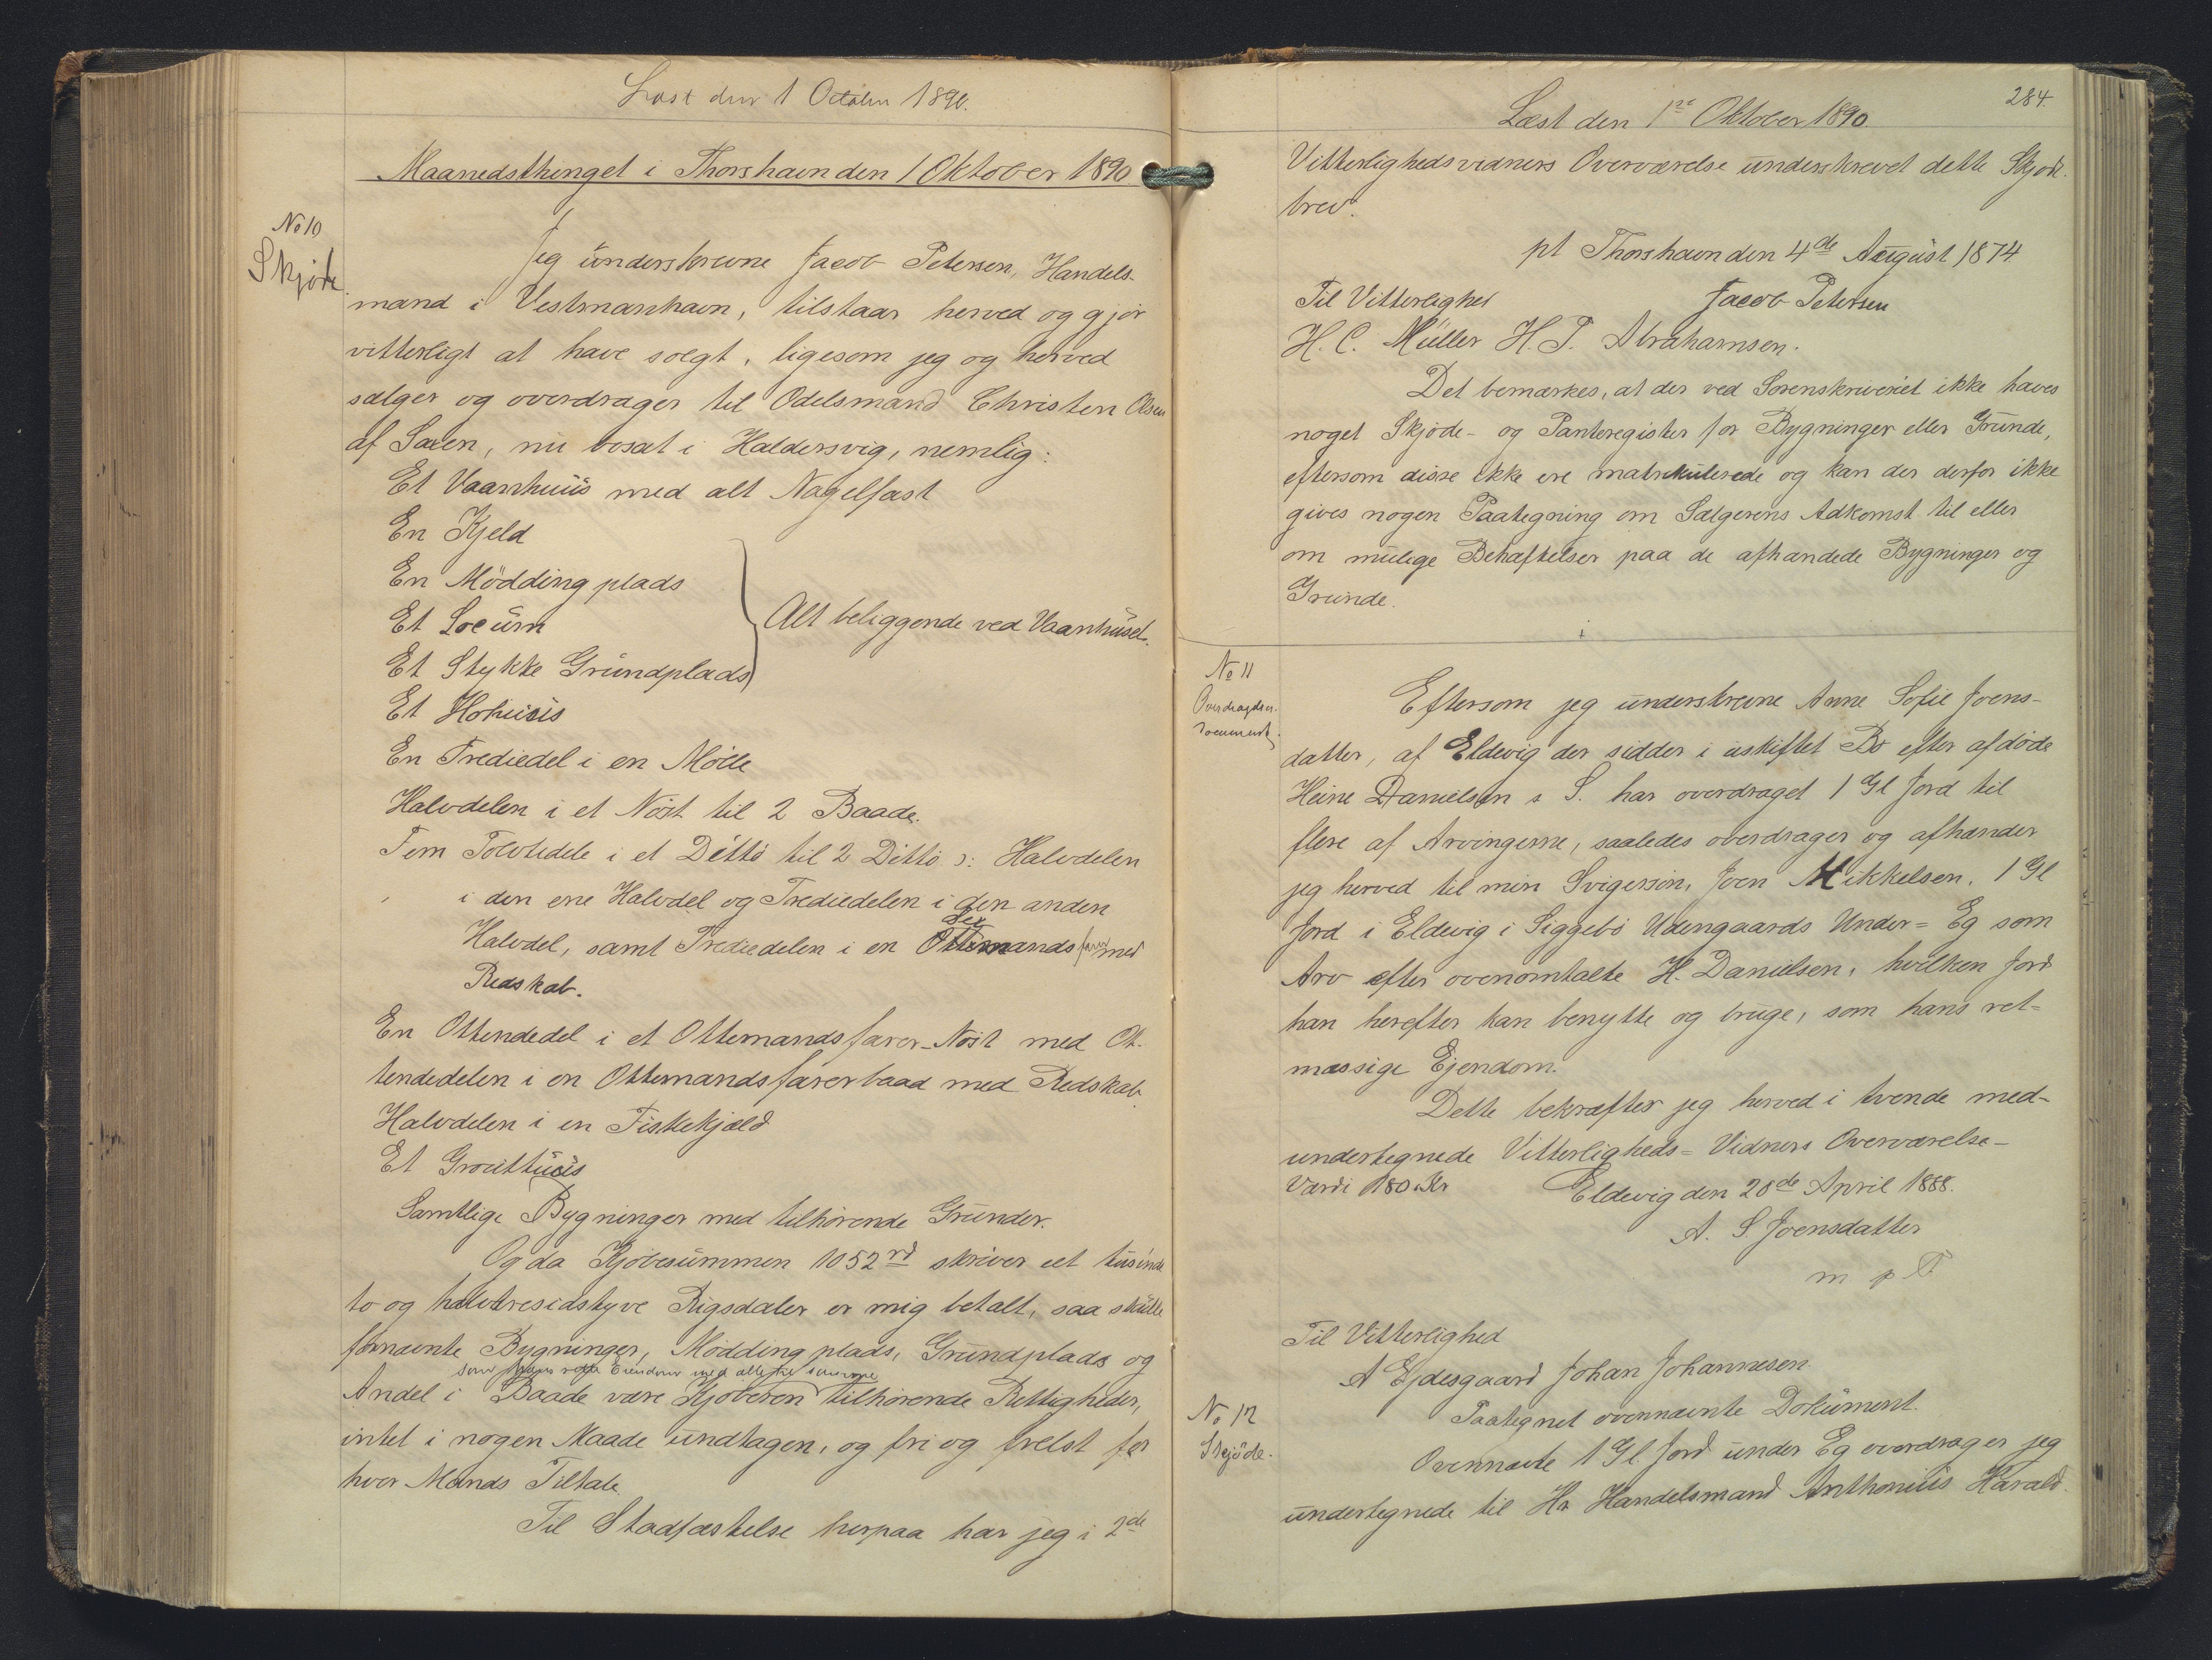 Læst den 1 October 1890.
Maanedsthinget i Thorshavn den 1 Oktober 1890
No 10
Skjøde
Jeg underskrevne Jacob Petersen, Handels-
mand i Vestmanhavn, tilstaar herved og gjør
vitterligt at have solgt, ligesom jeg og herved
sælger og overdrager til Odelsmand Christen Olsen
af Saxen, nu bosat i Haldersvig, nemlig:
Et Vaanhuus med alt Nagelfast
En Kjeld
En Mödding plads
Et Locum
Et Stykke Grundplads
Alt beliggende ved Vaanhuset.
Et Hohuus
En Trediedel i en Mölle
Halvdelen i et Nöst til 2 Baade.
Fem Tolvtedele i et Ditto til 2 Ditto ɔ: Halvdelen
i den ene Halvdel og Trediedelen i den anden
Halvdel, samt Trediedelen i en Sexmandsfarer med
Redskab.
En Ottendedel i et Ottemandsfarer-Nöst med Ot-
tendedelen i en Ottemandsfarerbaad med Redskab
Halvdelen i en Fiskekjæld
Et Grouthuus
Samtlige Bygninger med tilhørende Grunder.
Og da Kjøbesummen 1052 rd skriver eet tusinde
to og halvtresidstyve Rigsdaler er mig betalt, saa skulle
fornævnte Bygninger, Mödding plads, Grundplads og
som Eiendom med alle til samme
Andel i Baade være Kjøberen tilhørende Rettigheder,
intet i nogen Maade undtagen, og fri og frelst for
hver Mands Tiltale.
Til Stadfæstelse herpaa har jeg i 2de
284.
Læst den 1ste Oktober 1890.
Vitterlighedsvidners Overværelse underskrevet dette Skjøde-
brev.
pt Thorshavn den 4de August 1874
Til Vitterlighed Jacob Petersen
H. C. Müller H. P. Abrahamsen.
Det bemærkes, at der ved Sorenskriveriet ikke haves
noget Skjøde- og Panteregister for Bygninger eller Grunde,
eftersom disse ikke ere matrikulerede og kan der derfor ikke
gives nogen Paategning om Sælgerens Adkomst til eller
om mulige Behæftelser paa de afhændede Bygninger og
Grunde.
No 11
Overdragelses-
document.
Eftersom jeg underskrevne Anne Sofie Joens-
datter, af Eldevig der sidder i uskiftet Bo efter afdøde
Heine Danielsen s S. har overdraget 1 Gl Jord til
flere af Arvingerne, saaledes overdrager og afhænder
jeg herved til min Svigersön, Joen Mikkelsen, 1 Gl
Jord i Eldevig i Siggebö Udengaards Under= Eg som
Arv efter ovenomtalte H. Danielsen, hvilken Jord
han herefter kan benytte og bruge, som hans ret=
mæssige Ejendom.
Dette bekræfter jeg herved i tvende med-
undertegnede Vitterligheds= Vidners Overværelse-
Værdi 180 Kr Eldevig den 28de April 1888.
A. S Joensdatter
m p P
Til Vitterlighed
A Ejdesgaard Johan Johannesen.
No 12
Skjöde.
Paategnet ovennævnte Dokument.
Ovennævnte 1 Gl. Jord under Eg overdrager jeg
undertegnede til Hr Handelsmand Anthonius Harald-